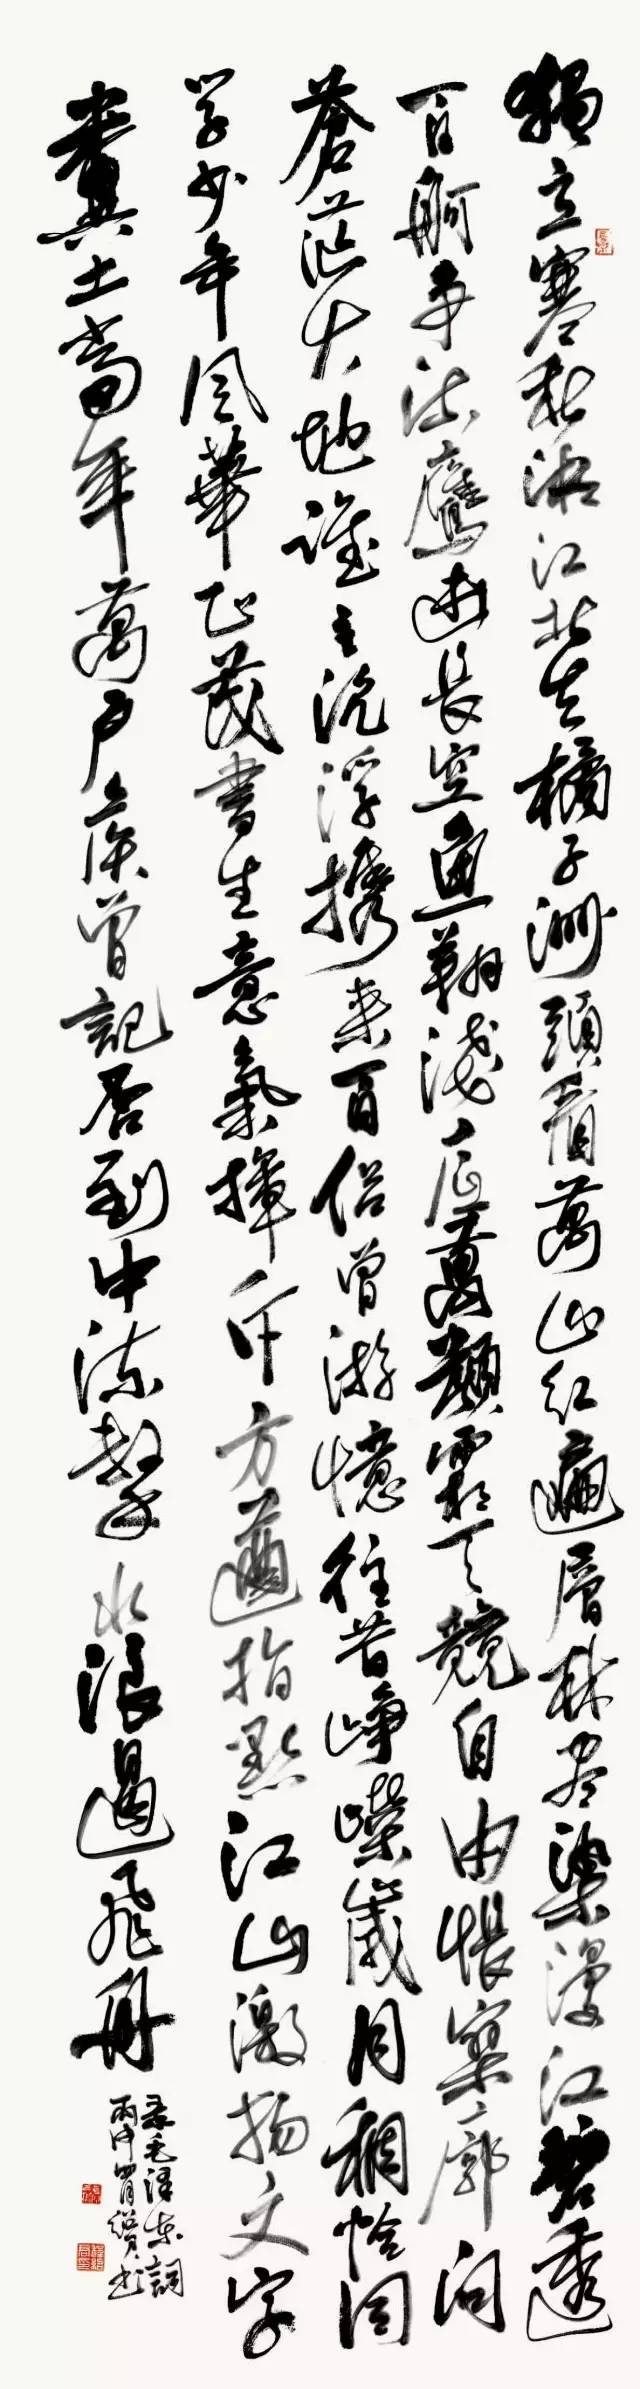 獨立寒秋湘江北去橘子洲頭看萬山红遍層林尽染漫江碧透
百舸争流鷹击長空魚翔淺底萬類霜天競自由悵寥廓问
蒼茫大地誰主沉浮携来百侣曾游憶往昔崢嶸歲月稠恰同
学少年風華正茂書生意氣揮斥方遒指點江山激扬文字
糞土當年萬户侯曾記否到中流擊水浪遏飛舟
录毛泽东詞
丙申